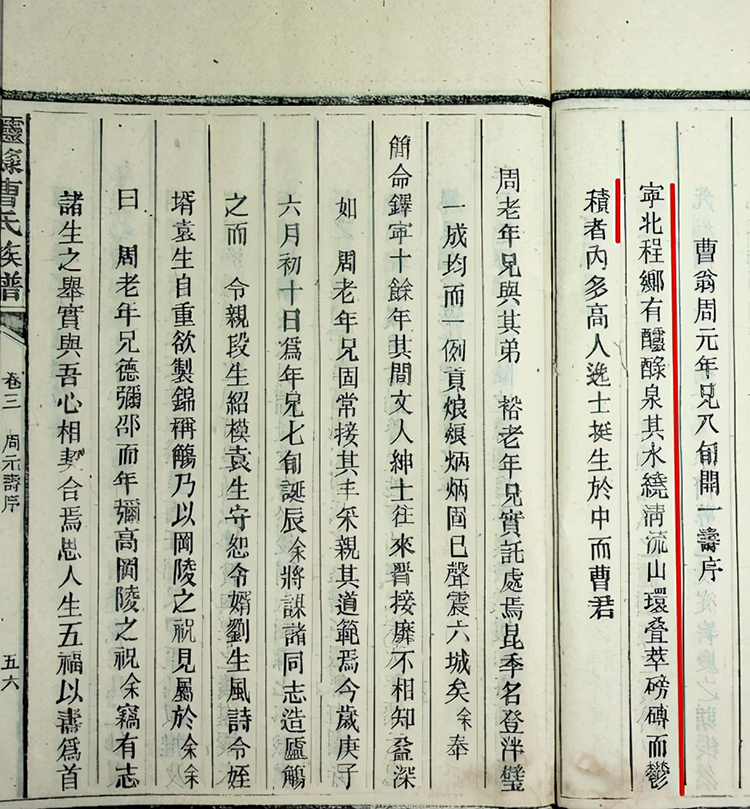 曹翁周元年兄八旬開一壽序
寧北程鄉有醽醁泉其水繞清流山環叠萃磅礴而鬱
積者內多高人逸士挺生於中而曹君
周老年兄與其弟 裕老年兄實託處焉昆季名登泮璧
一成均而一例貢娘娘炳炳固已聲震六城矣余奉
簡命鐸寧十餘年其間文人紳士往來晋接靡不相知益深
如 周老年兄固常接其丰采親其道範焉今歲庚子
六月初十日爲年兄七旬誕辰余將謀諸同志造廬觴
之而 令親段生紹模袁生守恕令婿劉生風詩令姪
壻袁生自重欲製錦稱觴乃以岡陵之祝見屬於余余
曰 周老年兄德彌邵而年彌高岡陵之祝余竊有志
諸生之舉實與吾心相契合焉思人生五福以壽爲首
靈縣曹氏族譜
卷三 周元壽序
五六